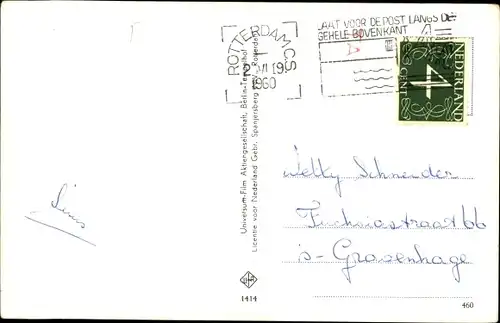 ROTTERDAM C.S
1960
LAAT VOOR DE POST LANGS DE
GEHELE BOVENKANT
4
CENT
NEDERLAND
Universum-Film Aktiengesellschaft, Berlin-Tempelhof
Licentie voor Nederland Gebr. Spanjersberg Rotterdam
Welly Schneider
Fuchsiastraat 66
's-Gravenhage
UFA
1414
460